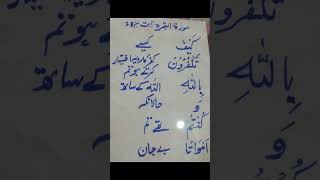 سورۃ البقرہ آیت نمبر 28
کَیْفَ کیسے
تَکْفُرُوْنَ کفر کا رویہ اختیار کرتے ہو تم
بِاللّٰہِ اللہ کے ساتھ
وَ حالانکہ
کُنْتُمْ تھے تم
اَمْوَاتًا بے جان